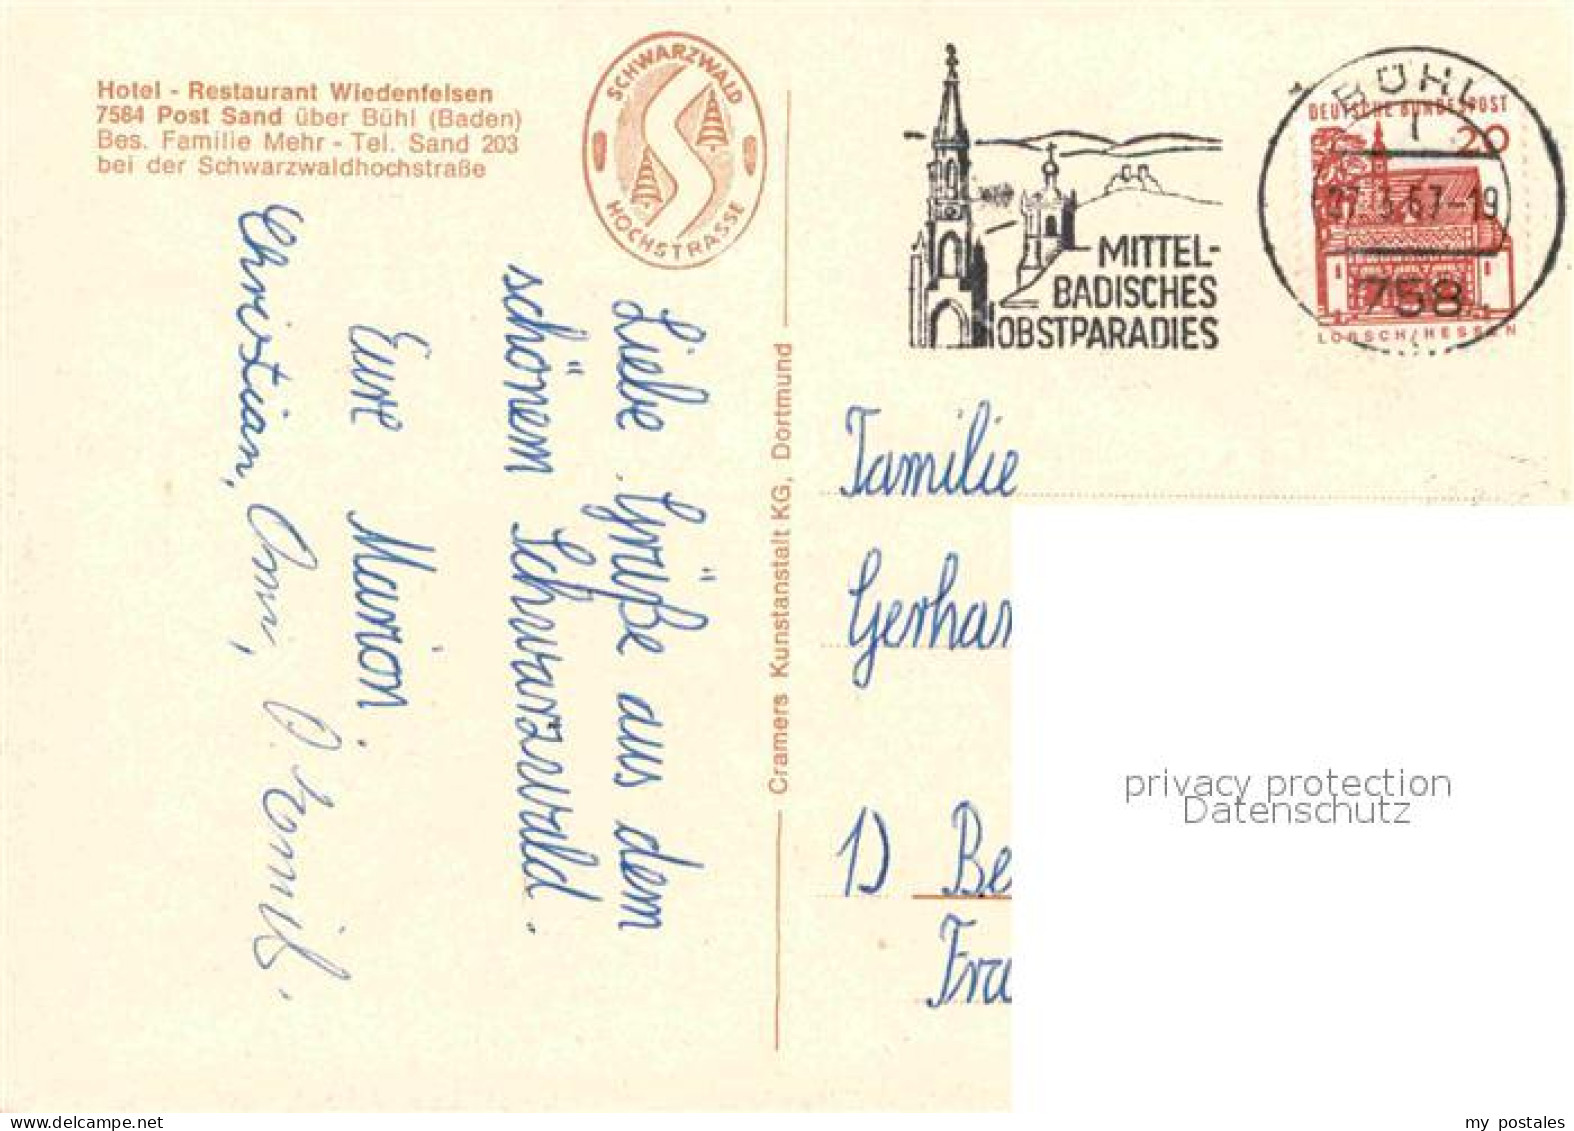 Hotel - Restaurant Wiedenfelsen
7584 Post Sand über Bühl (Baden)
Bes. Familie Mehr - Tel. Sand 203
bei der Schwarzwaldhochstraße
SCHWARZWALD
HOCHSTRASSE
Liebe Grüße aus dem
schönem Schwarzwald.
Eure Marion.
Christian,
Cramers Kunstanstalt KG, Dortmund
MITTEL-
BADISCHES
OBSTPARADIES
BÜHL
67-19
758
DEUTSCHE BUNDESPOST
20
LORSCH/HESSEN
Familie
Gerhar
D Be
Fra
privacy protection
Datenschutz
my postales